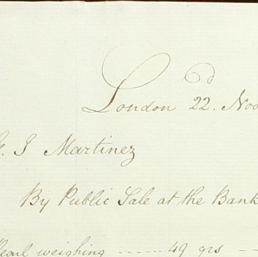 London 22. Nov
J Martinez
By Public Sale at the Bank
Pearl weighing ------ 49 grs --